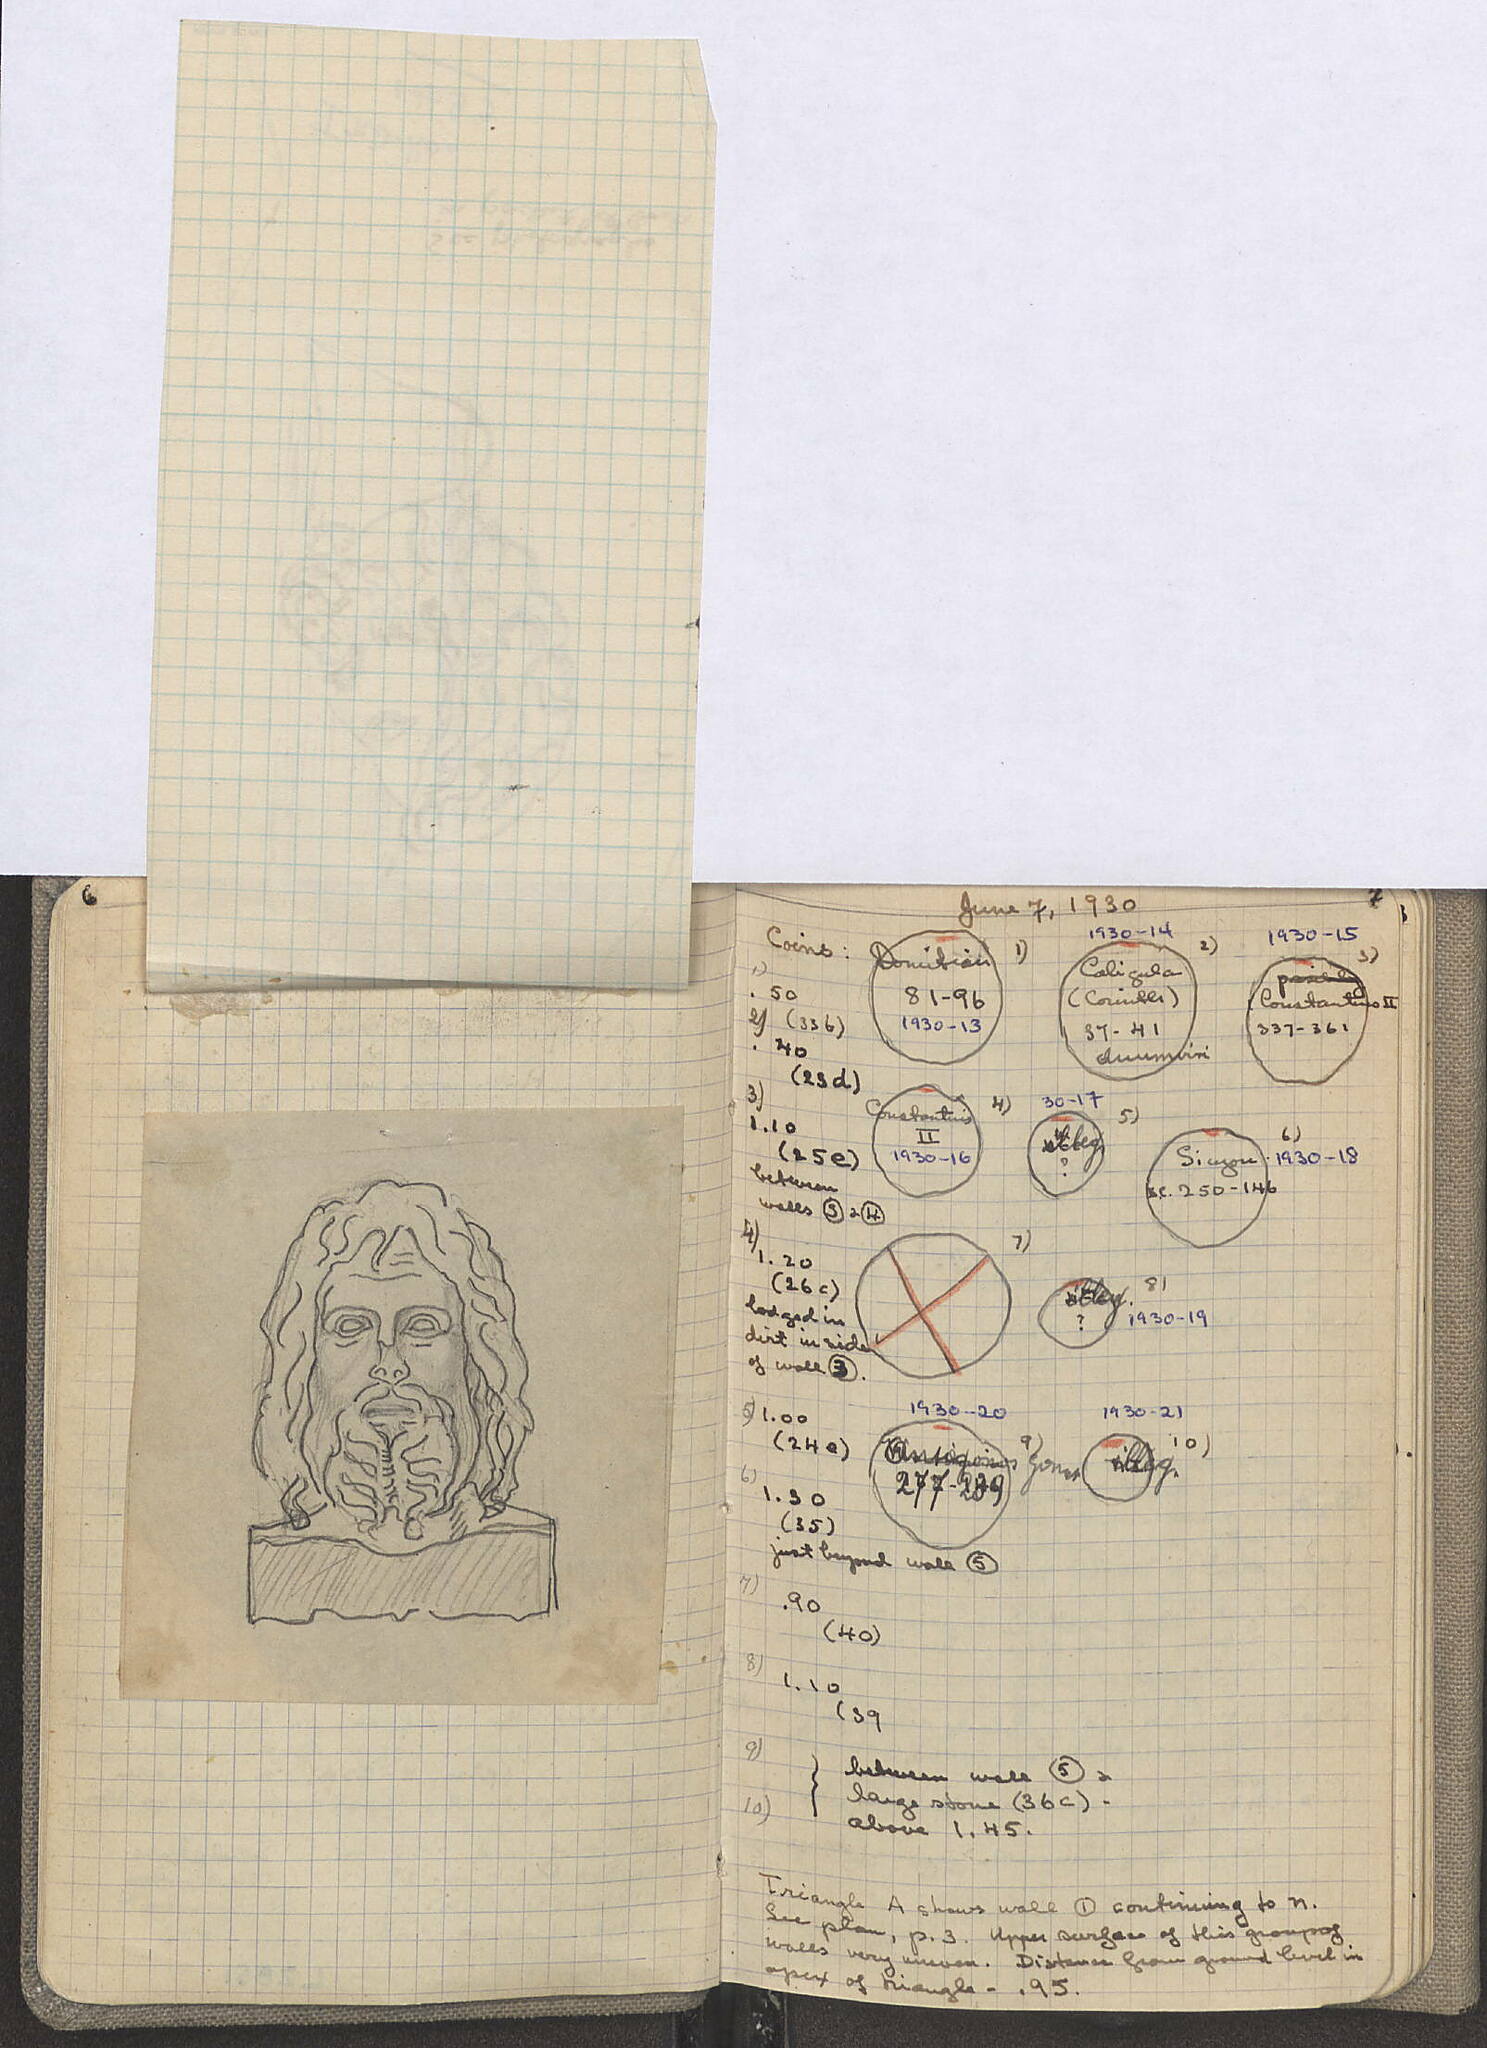 6
7
June 7, 1930
Coins:
Domitian
81-96
1930-13
1)
1930-14
Caligula
(Corinth)
37-41
duumviri
2)
1930-15
3)
Constantius II
337-361
1)
.50
2) (33b)
.40
(23d)
3)
1.10
(25e)
between
walls 5 & 4
Constantius
II
1930-16
4)
30-17
illeg.
?
5)
6)
Sicyon 1930-18
B.C. 250-146
4)
1.20
(26c)
lodged in
dirt in side
of wall 3.
7)
illeg.
?
8)
1930-19
5) 1.00
(24e)
6)
1.30
(35)
just beyond wall 5
1930-20
Antigonos Gonat
9)
277-239
1930-21
illeg.
10)
7)
.90
(40)
8)
1.10
(39
9)
10)
between wall 5 &
large stone (36c) -
above 1.45.
Triangle A shows wall 1 continuing to N.
See plan, p. 3. Upper surface of this group of
walls very uneven. Distance from ground level in
apex of triangle - .95.